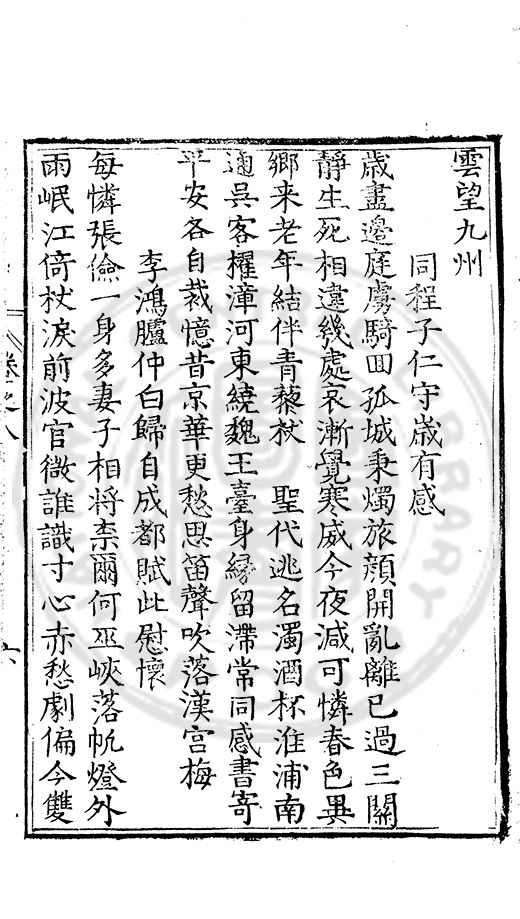 雲望九州
同程子仁守歲有感
歲盡邊庭虜騎囬孤城秉燭旅顔開亂離已過三關
靜生死相違幾處哀漸覺寒威今夜減可憐春色異
鄉来老年結伴青藜杖　聖代逃名濁酒杯淮浦南
通吳客櫂漳河東繞魏王臺身緣留滯常同感書寄
平安各自裁憶昔京華更愁思笛聲吹落漢宮梅
李鴻臚仲白歸自成都賦此慰懷
每憐張儉一身多妻子相將柰爾何巫峽落帆燈外
雨岷江倚杖淚前波官微誰識寸心赤愁劇偏令雙
卷之八
六